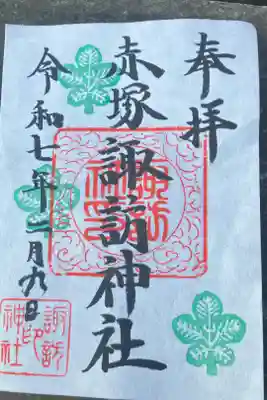 奉拝
赤塚諏訪神社
令和七年二月九日
諏訪
神社
印